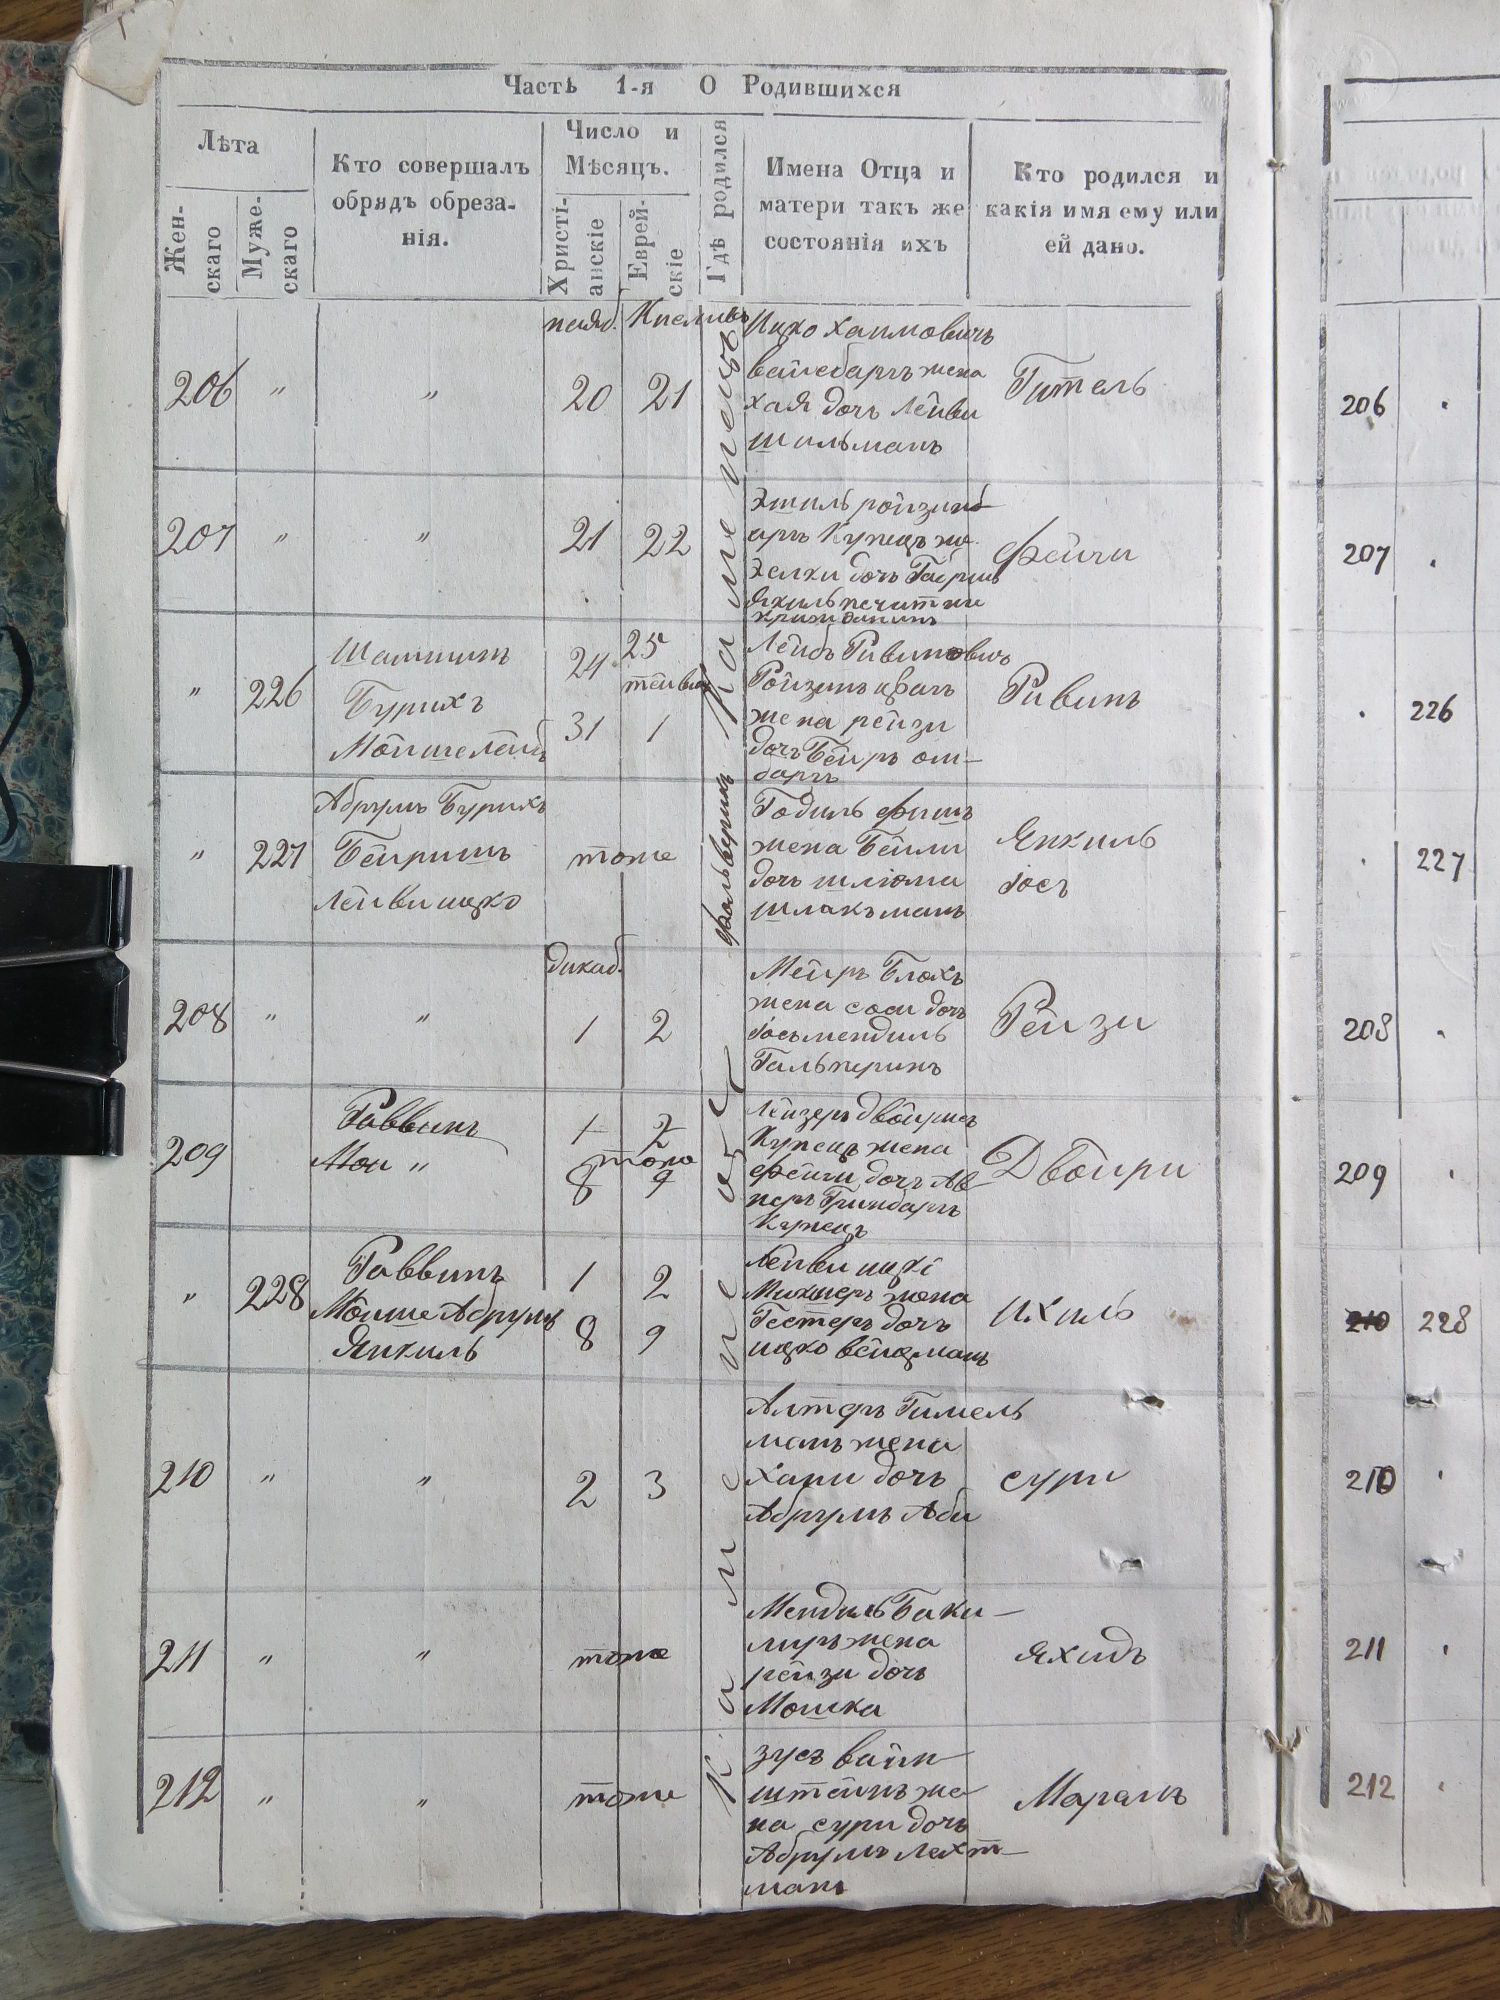 Часть 1-я О Родившихся
Лѣта
Жен-
скаго
Муже-
скаго
Кто совершалъ
обрядъ обреза-
нія.
Число и
Мѣсяцъ.
Христі-
анскіе
Еврей-
скіе
Гдѣ родился
Имена Отца и
матери такъ же
состоянія ихъ
Кто родился и
какія имя ему или
ей дано.
206 " " 20 21
Ицко Хаимовичъ
жена
хая дочь Лейви
Шильманъ
Гитель
207 " " 21 22
купецъ же
дочь
Фейги
" 226
Бурихъ
Мойше Лейбъ
24 25
31 1
Лейбъ Рувиновичъ
жена рейзи
дочъ Бейръ
баргъ
Ривинъ
" 227
Абрумъ Бурихъ
Бейришъ
Лейви ицко
тоже
Годиль Фишъ
жена Бейли
дочь шлиома
шлакъманъ
Янкиль
Іосъ
фольверикъ
208 " "
дикаб.
1 2
Мейръ Блохъ
жена соси дочь
Іосьмендиль
Гальперинъ
Рейзи
209
Раввинъ
Мои "
1 2
тоже
8 9
Лейзеръ Двойрисъ
Купецъ жена
фейги дочъ Ав
неръ Гринбаргъ
Купецъ
Двойри
" 228
Раввинъ
Мойше Абрумъ
Янкиль
1 2
8 9
Лейви
жена
Гестеръ дочъ
ицко вейцманъ
Ихиль
210 " " 2 3
Алтеръ Гимель
манъ жена
Хани дочъ
Абрумъ Аби
сури
211 " " тоже
Мендиль Баки-
лиръ жена
рейзи дочь
Мошка
яхидъ
212 " " тоже
зусъ вайн-
штейнъ же
на сури дочь
Абрумъ Лехт-
манъ
Марамъ
Каменецъ
206 .
207 .
. 226
. 227
208 .
209 .
210 228
210 .
211 .
212 .